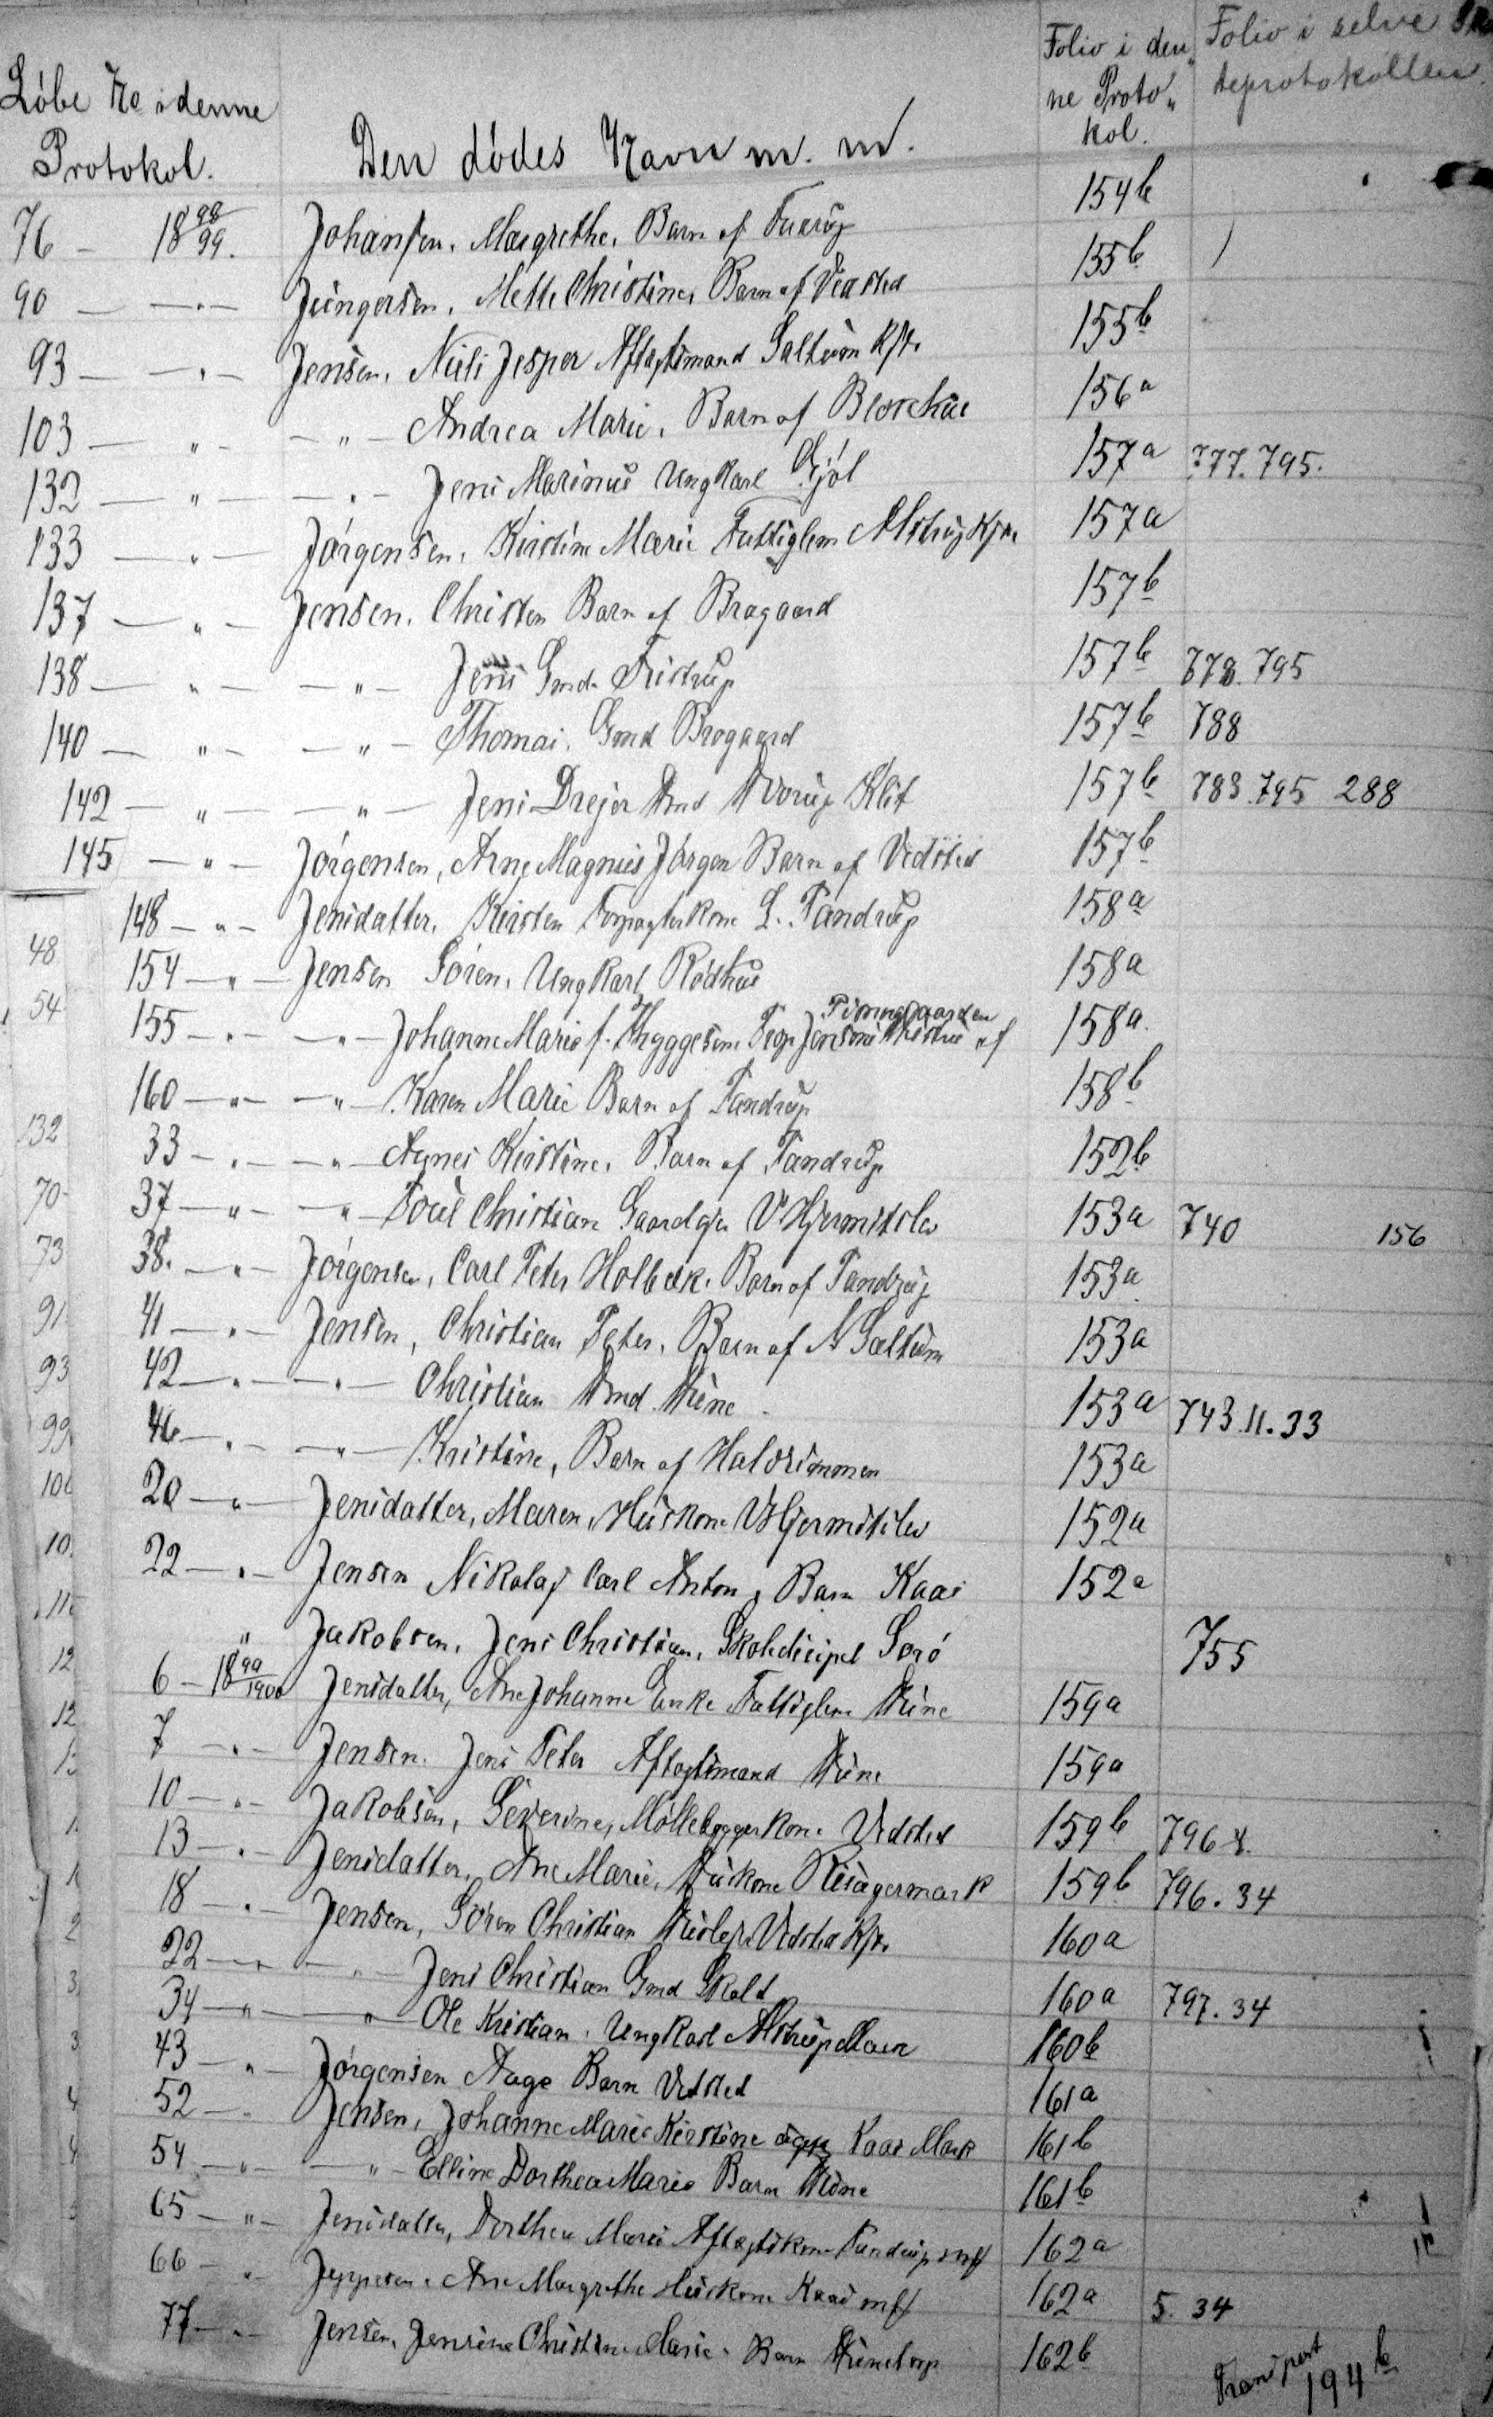 Löbe No i denne Protokol. Den dödes Navn m. m. Folio i denne Protokol. Folio i selve Skifteprotokollen
76 - 18 98/99. Johansen. Margrethe. Barn af 154b
90 — " — Jüngersen. Mette Christine, Barn af Vedsted 155b
93 — " — Jensen. Niels Jesper Aftægtsmand Saltum Kjr. 155b
103 — " — " — Andrea Marie. Barn af Blokhus 156a
132 — " — " — Jens Marinus Ungkarl Gjöl 157a 777. 795.
133 — " — Jörgensen. Kirstine Marie Fattiglem Alstrup Kjr. 157a
137 — " — Jensen. Christen Barn af Bragaard 157b
138 — " — " — Jens Gmd. Fristrup 157b 778. 795
140 — " — " — Thomas. Gmd Brogaard 157b 788
142 — " — " — Jens Drejer Hmd Hvorup Klit 157b 783. 795 288
145 — " — Jörgensen, Arne Magnus Jörgen Barn af Vedsted 157b
148 — " — Jensdatter. Kirsten Forpagterkone L. Pandrup 158a
154 — " — Jensen Sören. Ungkarl Rödhus 158a
155 — " — " — Johanne Marie f. Thyggesen Jensens Hustru af 158a
160 — " — " — Karen Marie Barn af Pandrup 158b
33 — " — " — Agnes Kirstine. Barn af Pandrup 152b
37 — " — " — Poul Christian Gaardejer V Hjermitslev 153a 740 156
38. — " — Jörgensen, Carl Peter Holbæk. Barn af Pandrup 153a
41 — " — Jensen, Christian Peter. Barn af N Saltum 153a
42 — " — " — Christian Hmd. Hune 153a 743. 11. 33
46 — " — " — Kristine, Barn af Haldrimmen 153a
20 — " — Jensdatter, Maren, Huskone V Hjermitslev 152a
22 — " — Jensen Nikolaj Carl Anton, Barn Kaas 152a
" Jakobsen. Jens Christian. Skolediscipel Sorö 755
6 — 18 99/1900 Jensdatter, Ane Johanne Enke Fattiglem Hune 159a
7 — " — Jensen. Jens Peter Aftægtsmand Hune 159a
10 — " — Jakobsen, Severine, Möllebyggerkone Vedsted 159b 796
13 — " — Jensdatter, Ane Marie, Huskone Risagermark 159b 796. 34
18 — " — Jensen, Sören Christian Huslejer Vedsted Kjr. 160a
22 — " — " — Jens Christian Gmd Skelt 160a 797. 34
34 — " — " — Ole Kristian. Ungkarl Alstrup 160b
43 — " — Jörgensen Aage Barn Vedsted 161a
52 — " Jensen, Johanne Marie Kirstine Kaas Mark 161b
54 — " — " — Elline Dorthea Marie Barn Hune 161b
65 — " — Jensdatter, Dorthea Marie Aftægtskone Pandrup 162a
66 — " Jeppesen. Ane Margrethe Huskone Kaas 162a 5. 34
77 — " — Jensen, Jensine Christine Marie. Barn Hunetorp 162b
Transport 194b